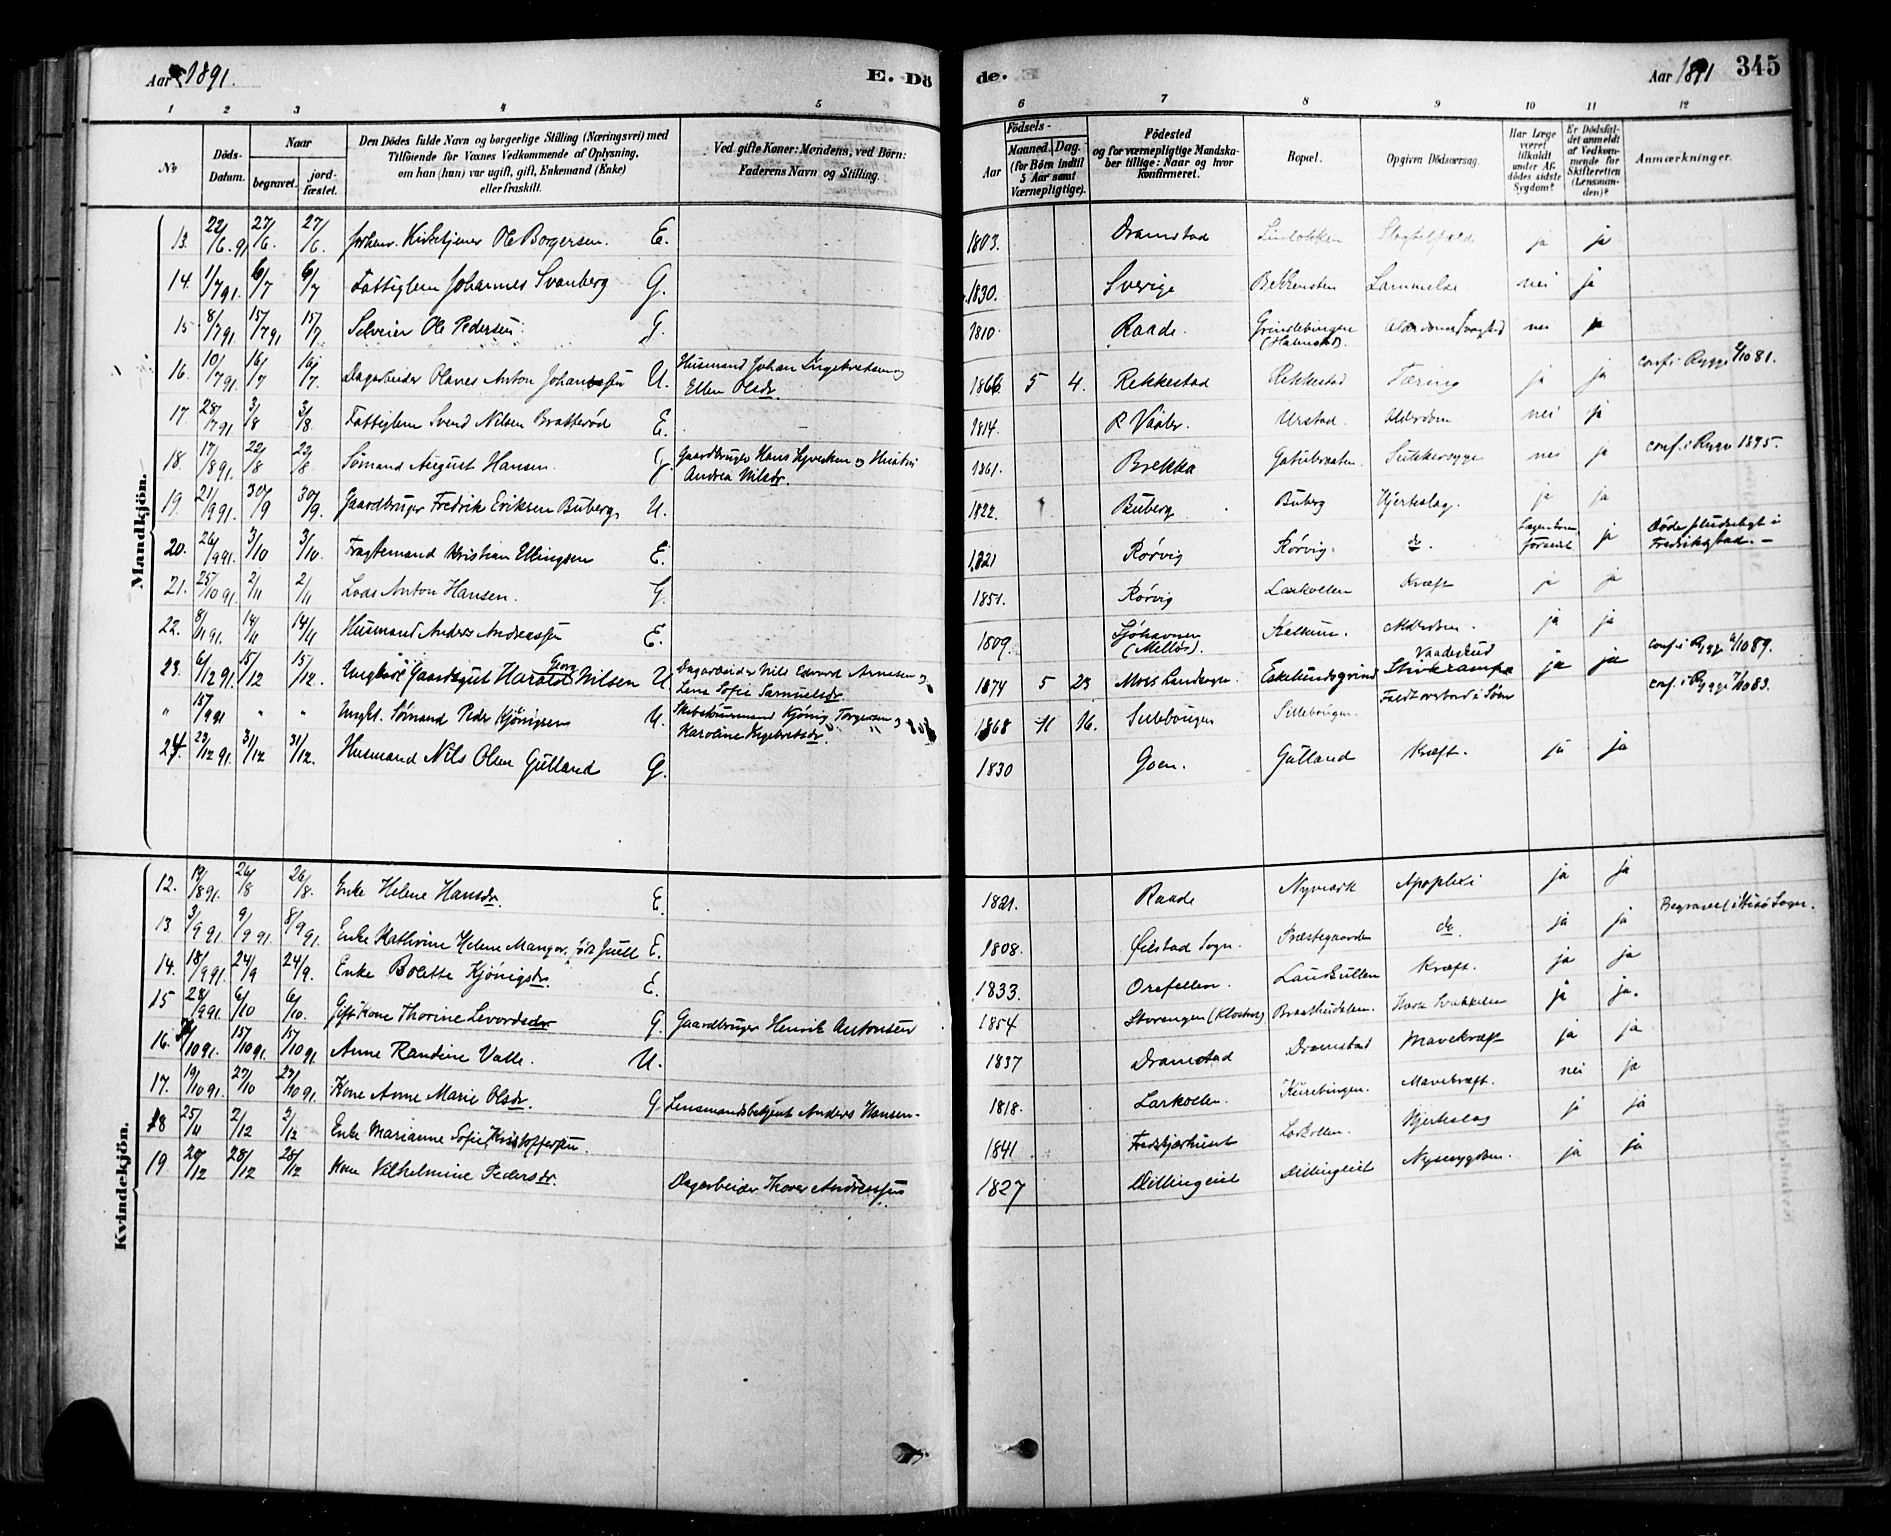 Aar 1891. E. Dö
de. Aar 1891 345
1 2 3 4 5 6 7 8 9 10 11 12
No
Döds-Datum.
Naar
begravet.
jordfæstet.
Den Dödes fulde Navn og borgerlige Stilling (Næringsvei) med
Tilföiende for Voxnes Vedkommende af Oplysning,
om han (hun) var ugift, gift, Enkemand (Enke)
eller fraskilt.
Ved gifte Koner: Mandens, ved Börn:
Faderens Navn og Stilling.
Födsels-
Aar
Maaned. Dag.
(for Börn indtil
5 Aar samt
Værnepligtige).
Födested
og for værnepligtige Mandskaber tillige: Naar og hvor
Konfirmeret.
Bopæl.
Opgiven Dödsaarsag.
Har Læge
været
tilkaldt
under Afdödes sidste
Sygdom?
Er Dödsfaldet anmeldt
af Vedkommende for
Skifteretten
(Lensmanden)?
Anmærkninger.
Mandkjön.
13. 22/6.91 27/6. 27/6 forhenv. Kirketjener Ole Borgersen. E. 1803. Dramstad ja ja
14. 1/791. 6/7 6/7 Fattiglem Johannes Svanberg G. 1830. Sverige Lammelse nei ja
15 8/791. 15/791 15/7 Selveier Ole Pedersen G. 1810. Raade. nei ja
16. 10/791 16/7 16/7. Dagarbeider Olaves Anton Johansen U. Husmand Johan Ingebretsen og
Ellen Olsdr. 1866 5 4. Rekkestad Rekkestad Tæring ja ja conf. i Rygge 2/10 81.
17. 28/791 3/8 3/8. Fattiglem Svend Nilsen Bratterød E. 1814. Vaaler. Urstad. Alderdom nei ja
18. 17/891. 22/8 22/8. Sømand August Hansen. G Gaardbruger Hans og Hustru
Andrea Nilsdr. 1861. Brekka Sukkersyge nei ja conf. i Rygge
19. 21/991. 30/9 30/9. Gaardbruger Fredrik Eriksen Buberg, U. 1822. Buberg Buberg Hjerteslag. ja ja
20. 26/991. 3/10 3/10. Fragtemand Kristian Ellingsen E. 1821 Rørvig Rørvig. do. ja Døde pludseligt i
Fredrikstad. —
21. 25/1091. 2/11 2/11 Lods Anton Hansen. G. 1851. Rørvig Larkollen Kræft ja ja
22. 8/1191. 14/11 14/11 Husmand Anders Andreassen E. 1809. Sjøhavnen
(Melløs). Alderdom. ja ja
23. 6/1291. 15/12 15/12. Ungkarl Gaardsgut Harald Georg Nilsen U Dagarbeider Nils Edvard Arnesen og
Lena Sofie Samuelsdr. 1874 5 23 Moss Landsogn. Ekelundsgrind ja ja conf. i Rygge 6/10 89.
" 15/991 " " Ungk. Sømand Peder Kjønigsen U. Kjønig Torgersen og
Karoline Ingebretsdr. 1868 11 16. Sillebougen Sillebougen. Faldt overbord i Søen conf. i Rygge 7/10 83.
24. 23/1291. 31/12 31/12. Husmand Nils Olsen Gulland G. 1830 Goen. Gulland Kræft. ja ja
Kvindekjön.
12. 19/891. 26/8 26/8. Enke Helene Hansdr. E. 1821. Raade Nymark Apoplexi ja ja
13 3/991 9/991. 8/991 Enke Kathrine Helene Mangor, født Juell E. 1808. Øiestad Sogn. Præstegaarden do. ja ja
14. 18/991. 24/9 24/9. Enke Bolette Kjønigsdr. E. 1833. Orefellen. Kræft. ja ja
15 28/991. 6/10 6/10. Gift Kone Thorine Levordsdr. G. Gaardbruger Henrik Antonsen 1854 Storengen (Kloster) ja ja.
16. /1091. 15/1091. 15/1091 Anne Randine Valle. U. 1837 Dramstad Dramstad Mavekræft ja ja
17. 19/1091. 27/10 27/1091. Kone Anne Marie Olsdr. G. Lensmandsbetjent Anders Hansen. 1818. Larkollen Kurebingen. Mavekræft. nei ja
18 25/11 2/12 2/12 Enke Marianne Sofie Kristoffersen. 1841 Larkollen. Hjerteslag ja ja
19 20/12 28/12 28/12 Kone Vilhelmine Pedersdr. Dagarbeider Thorer Andreassen 1827 Dillingeiet Dillingeiet Nyresygdom. ja ja